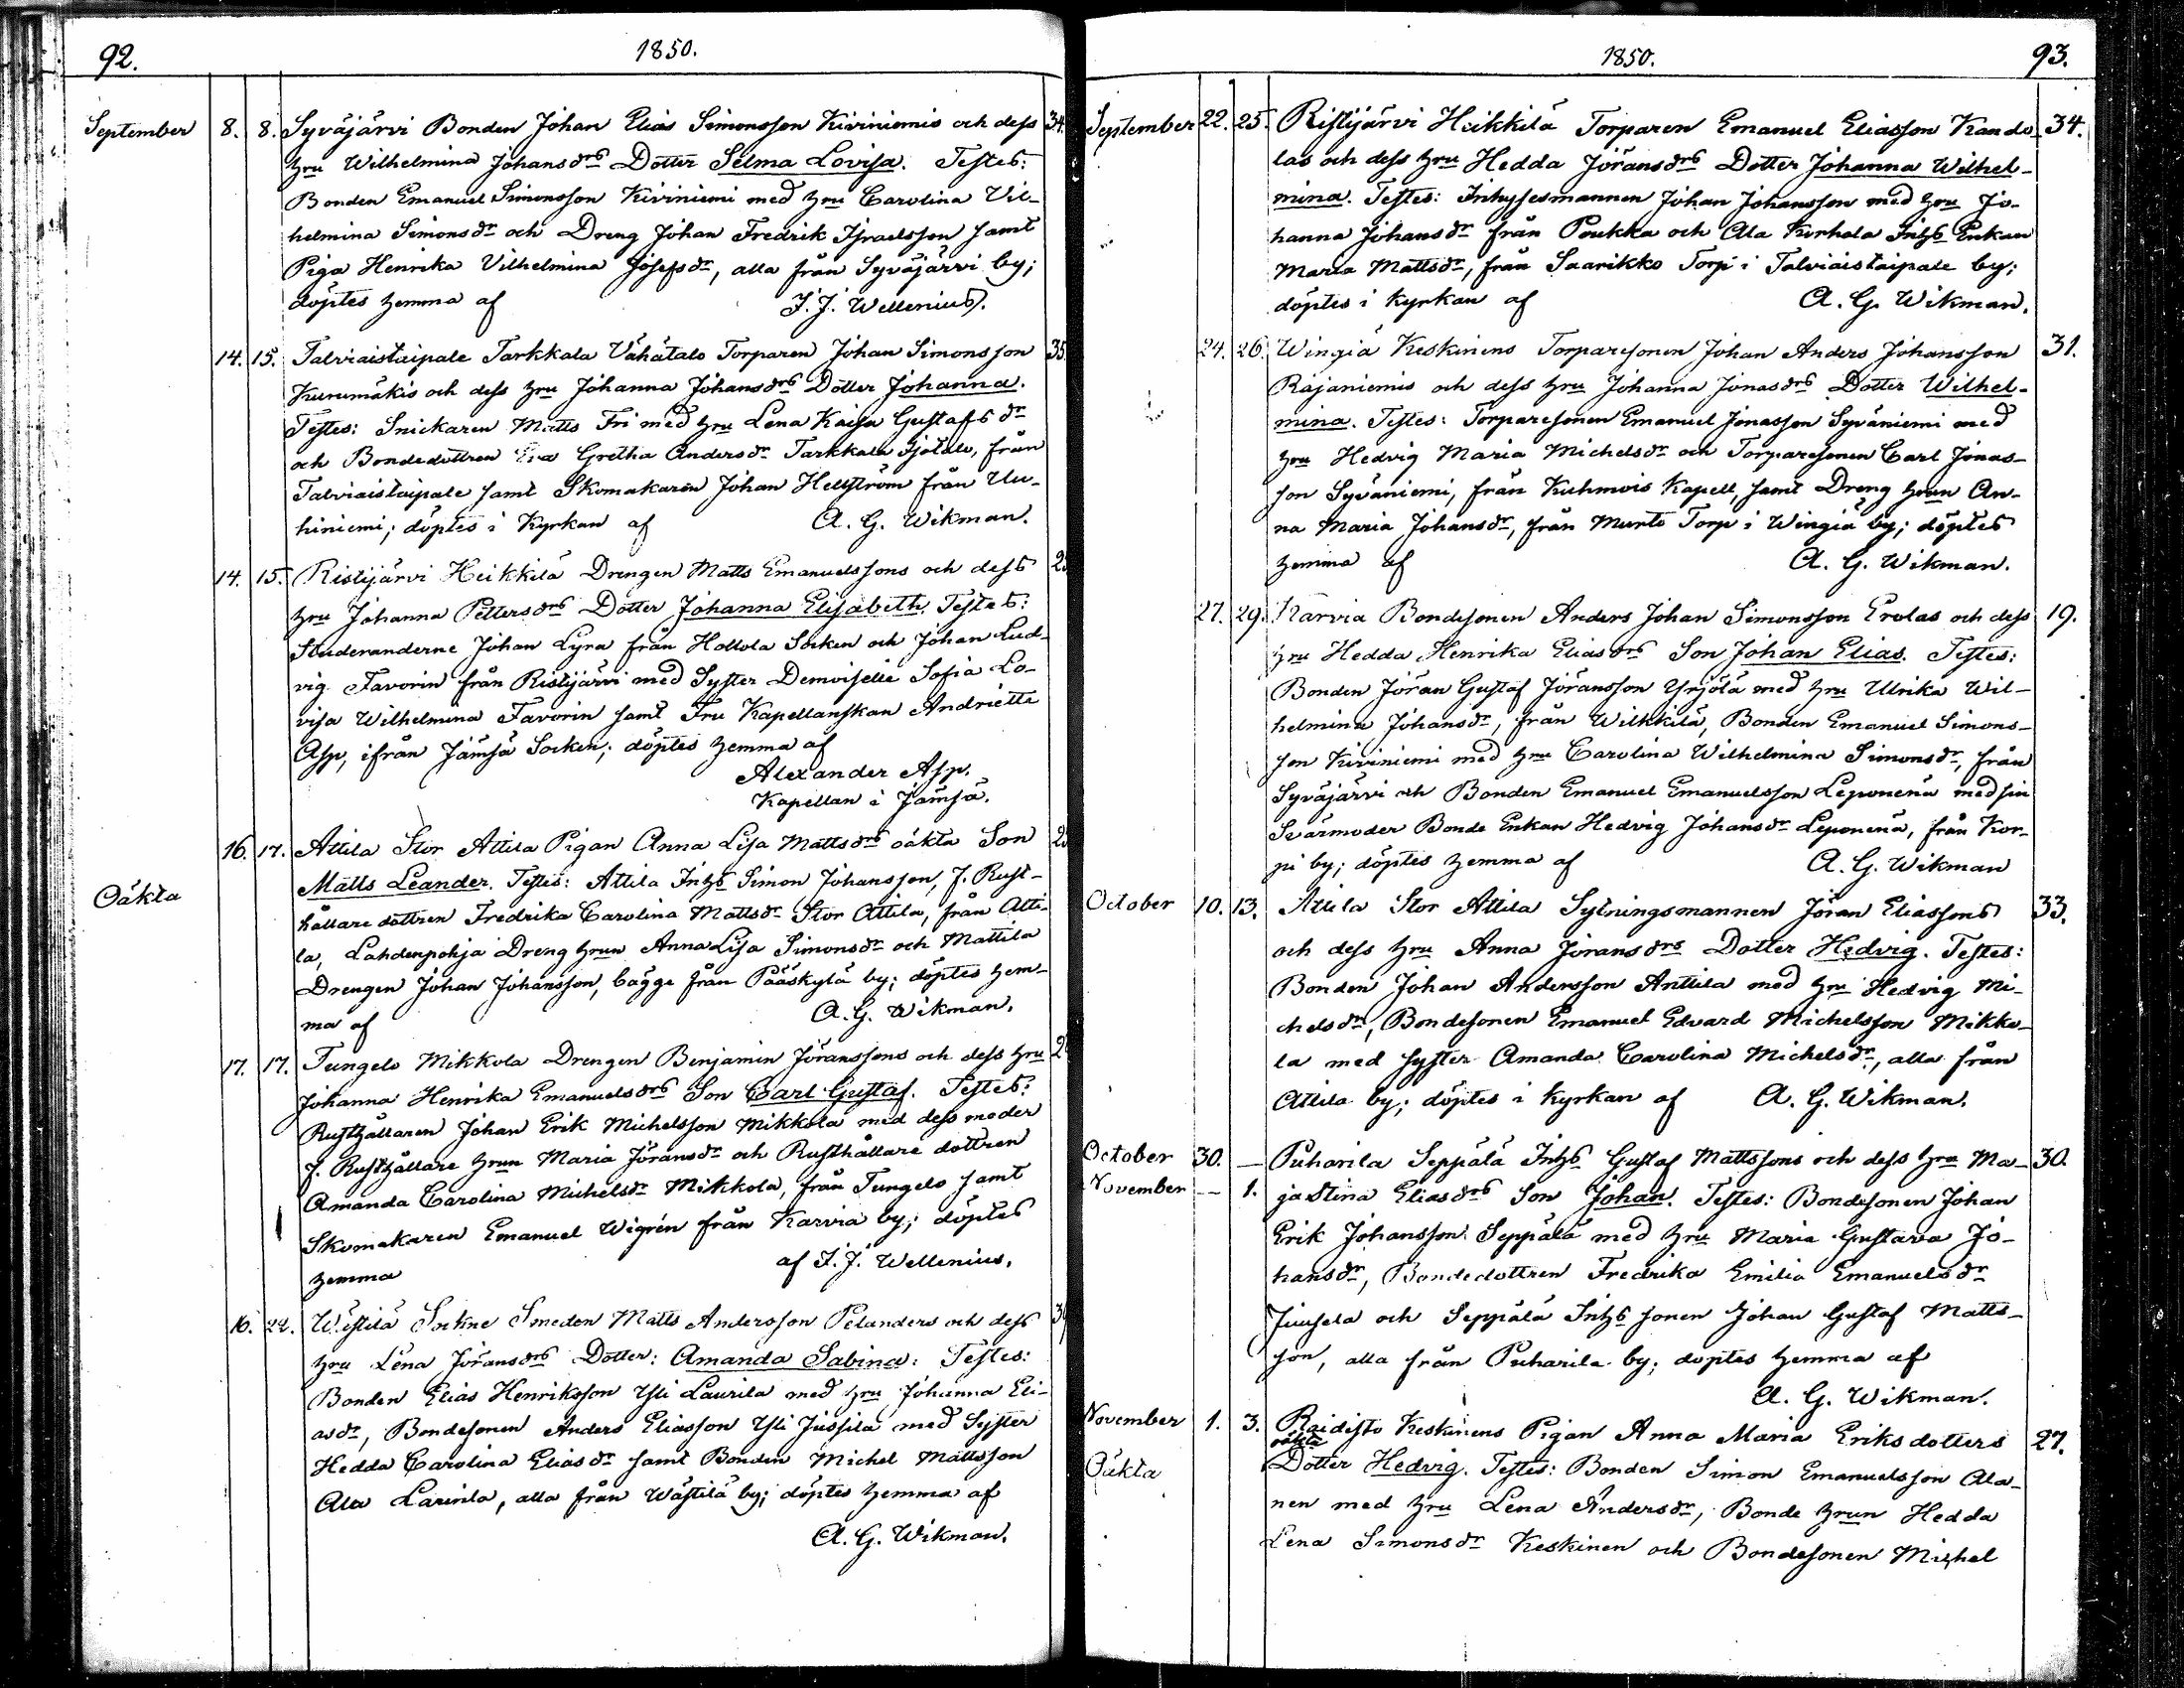 92. 1850.
September 8. 8. Syväjärvi Bonden Johan Elias Simonsson Kiviniemis och dess 34.
hru Wilhelmina Johansdrs Dotter Selma Lovisa. Testes:
Bonden Emanuel Simonsson Kiviniemi med hru Carolina Vil-
helmina Simonsdr och Dreng Johan Fredrik Israelsson samt
Piga Henrika Vilhelmina Josefsdr, alla från Syväjärvi by;
döptes hemma af F. J. Wellenius.
14. 15. Talviaistaipale Tarkkala Vähätalo Torparen Johan Simonsson 35
Kurumäkis och dess hru Johanna Johansdrs Dotter Johanna.
Testes: Snickaren Matts Fri med hru Lena Kaisa Gustafsdr
och Bondedottren Eva Gretha Andersdr Tarkkala Isotalo, från
Talviaistaipale samt Skomakaren Johan Hellström från Uu-
hiniemi; döptes i Kyrkan af A. G. Wikman.
14. 15. Ristijärvi Heikkilä Drengen Matts Emanuelssons och dess
hru Johanna Pettersdrs Dotter Johanna Elisabeth. Testes:
Studeranderne Johan Lyra från Hollola Socken och Johan Lud-
vig Favorin från Ristijärvi med Syster Demoiselle Sofia Lo-
visa Wilhelmina Favorin samt Fru Kapellanskan Andriette
Asp, ifrån Jämsä Socken; döptes hemma af
Alexander Asp.
Kapellan i Jämsä.
16. 17. Attila Stor Attila Pigan Anna Lisa Mattsdrs oäkta Son
Oäkta Matts Leander. Testes: Attila Inhs Simon Johansson, f. Rust-
hållare dottren Fredrika Carolina Mattsdr Stor Attila, från Atti-
la, Lahdenpohja Dreng hrun Anna Lisa Simonsdr och Mattila
Drengen Johan Johansson, bägge från Pääskylä by; döptes hem-
ma af A. G. Wikman.
17. 17. Tungelo Mikkola Drengen Benjamin Göranssons och dess hru
Johanna Henrika Emanuelsdrs Son Carl Gustaf. Testes:
Rusthållaren Johan Erik Michelsson Mikkola med dess moder
f. Rusthållare hrun Maria Göransdr och Rusthållare dottren
Amanda Carolina Michelsdr Mikkola, från Tungelo samt
Skomakaren Emanuel Wigrén från Karvia by; döptes
hemma af F. J. Wellenius.
16. 22. Wästilä Sockne Smeden Matts Andersson Pelanders och dess
hru Lena Göransdrs Dotter: Amanda Sabina: Testes:
Bonden Elias Henriksson Yli Laurila med hru Johanna Eli-
asdr, Bondesonen Anders Eliasson Yli Jussila med Syster
Hedda Carolina Eliasdr samt Bonden Michel Mattsson
Ala Laurila, alla från Wästilä by; döptes hemma af
A. G. Wikman.
1850. 93.
September 22. 25. Ristijärvi Heikkilä Torparen Emanuel Eliasson Kando- 34.
las och dess hru Hedda Göransdrs Dotter Johanna Wilhel-
mina. Testes: Inhysesmannen Johan Johansson med hru Jo-
hanna Johansdr från Poukka och Ala Kirhola Inhs Enkan
Maria Mattsdr, från Saarikko Torp i Talviaistaipale by;
döptes i Kyrkan af A. G. Wikman.
24. 26. Wingiä Keskinens Torparesonen Johan Anders Johansson 31.
Rajaniemis och dess hru Johanna Jonasdrs Dotter Wilhel-
mina. Testes: Torparesonen Emanuel Jonasson Syväniemi med
hru Hedvig Maria Michelsdr och Torparesonen Carl Jonas-
son Syväniemi, från Kuhmois Kapell, samt Dreng hrun An-
na Maria Johansdr, från Murto Torp i Wingiä by; döptes
hemma af A. G. Wikman.
27. 29. Karvia Bondesonen Anders Johan Simonsson Erolas och dess 19.
hru Hedda Henrika Eliasdrs Son Johan Elias. Testes:
Bonden Göran Gustaf Göransson Yrjölä med hru Ulrika Wil-
helmina Johansdr, från Wilkkilä, Bonden Emanuel Simons-
son Kiviniemi med hru Carolina Wilhelmina Simonsdr, från
Syväjärvi och Bonden Emanuel Emanuelsson Leponena med sin
Svärmoder Bonde Enkan Hedvig Johansdr Leponena, från Kor-
pi by; döptes hemma af A. G. Wikman
October 10. 13. Attila Stor Attila Sytningsmannen Göran Eliassons 33.
och dess hru Anna Göransdrs Dotter Hedvig. Testes:
Bonden Johan Andersson Anttila med hru Hedvig Mi-
chelsdr, Bondesonen Emanuel Edvard Michelsson Mikko-
la med syster Amanda Carolina Michelsdr, alla från
Attila by; döptes i Kyrkan af A. G. Wikman.
October 30. — Puharila Seppälä Inhs Gustaf Mattssons och dess hru Ma- 30.
November — 1. ja Stina Eliasdrs Son Johan. Testes: Bondesonen Johan
Erik Johansson Seppälä med hru Maria Gustava Jo-
hansdr, Bondedottren Fredrika Emilia Emanuelsdr
Juusela och Seppälä Inhs sonen Johan Gustaf Matts-
son, alla från Puharila by; döptes hemma af
A. G. Wikman.
November 1. 3. Raidisto Keskinens Pigan Anna Maria Eriksdotters 27.
oäkta
Oäkta Dotter Hedvig. Testes: Bonden Simon Emanuelsson Ala-
nen med hru Lena Andersdr, Bonde hrun Hedda
Lena Simonsdr Keskinen och Bondesonen Michel